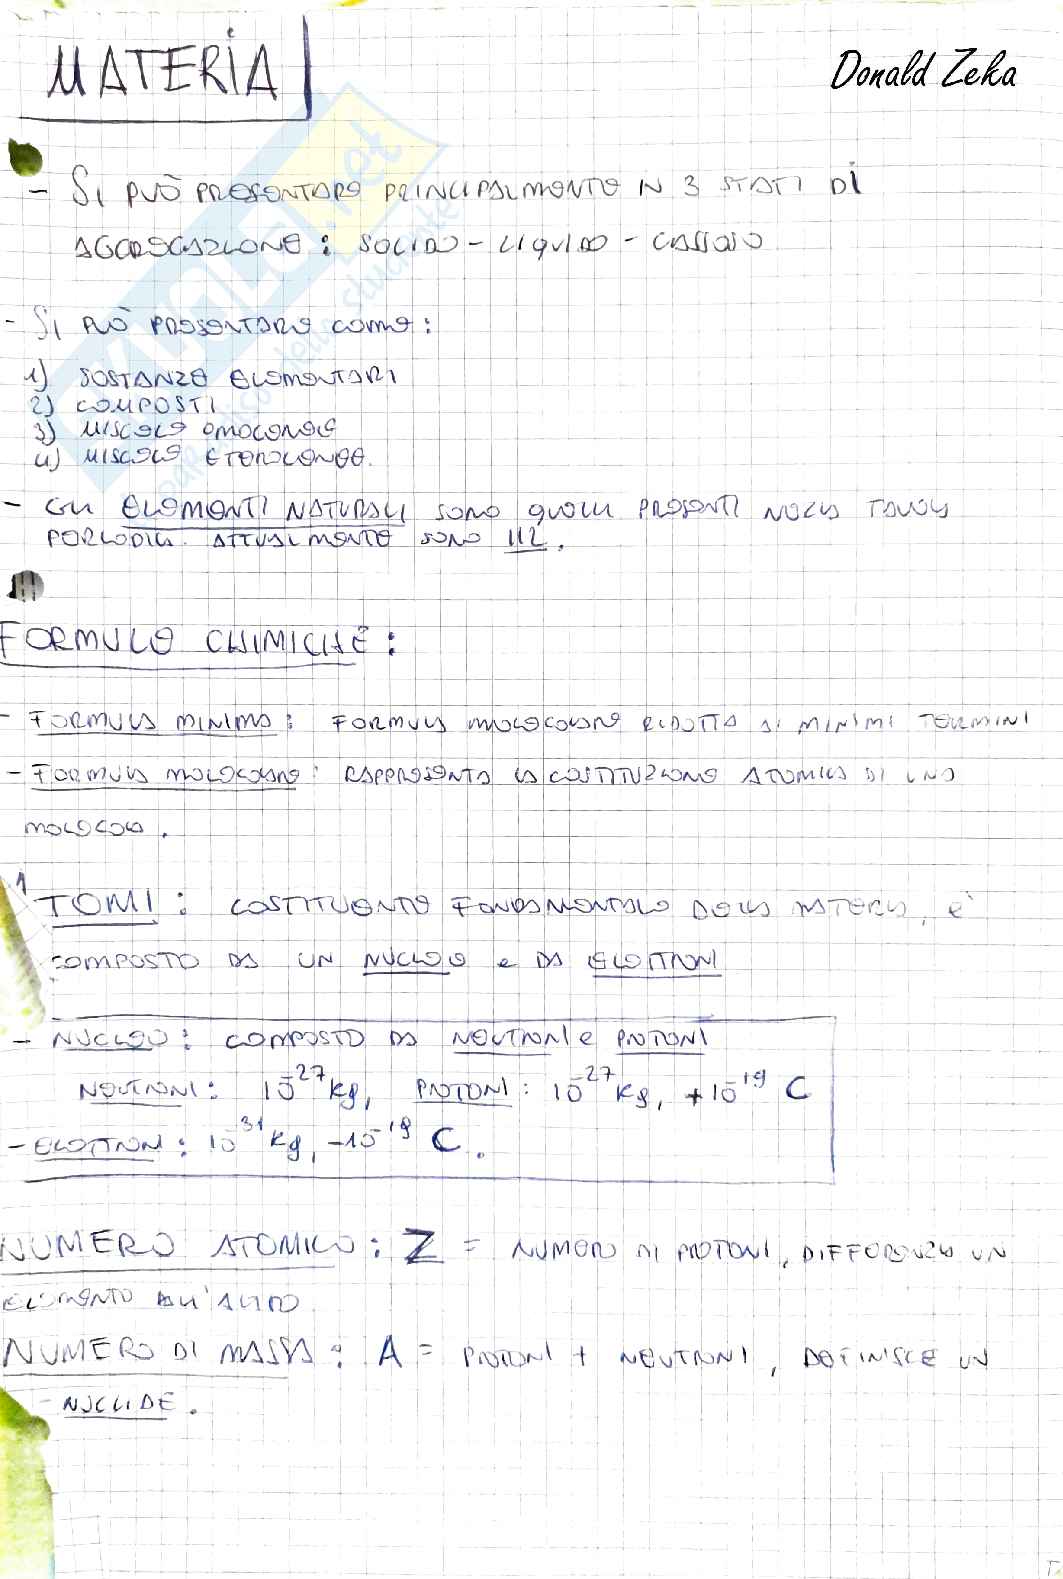 MATERIA
Donald Zeka
- SI PUÒ PRESENTARE PRINCIPALMENTE IN 3 STATI DI
AGGREGAZIONE: SOLIDO - LIQUIDO - GASSOSO
- SI PUÒ PRESENTARE COME:
1) SOSTANZE ELEMENTARI
2) COMPOSTI
3) MISCELE OMOGENEE
4) MISCELE ETEROGENEE.
- GLI ELEMENTI NATURALI SONO QUELLI PRESENTI NELLA TAVOLA
PERIODICA. ATTUALMENTE SONO 112.
FORMULE CHIMICHE:
- FORMULA MINIMA: FORMULA MOLECOLARE RIDOTTA AI MINIMI TERMINI
- FORMULA MOLECOLARE: RAPPRESENTA LA COSTITUZIONE ATOMICA DI UNA
MOLECOLA.
ATOMI: COSTITUENTE FONDAMENTALE DELLA MATERIA, E'
COMPOSTO DA UN NUCLEO E DA ELETTRONI
- NUCLEO: COMPOSTO DA NEUTRONI E PROTONI
NEUTRONI: 10⁻²⁷ Kg, PROTONI: 10⁻²⁷ Kg, +10⁻¹⁹ C
- ELETTRONI: 10⁻³¹ Kg, -10⁻¹⁹ C.
NUMERO ATOMICO: Z = NUMERO DI PROTONI, DIFFERENZIA UN
ELEMENTO DALL'ALTRO
NUMERO DI MASSA: A = PROTONI + NEUTRONI, DEFINISCE UN
- NUCLIDE.